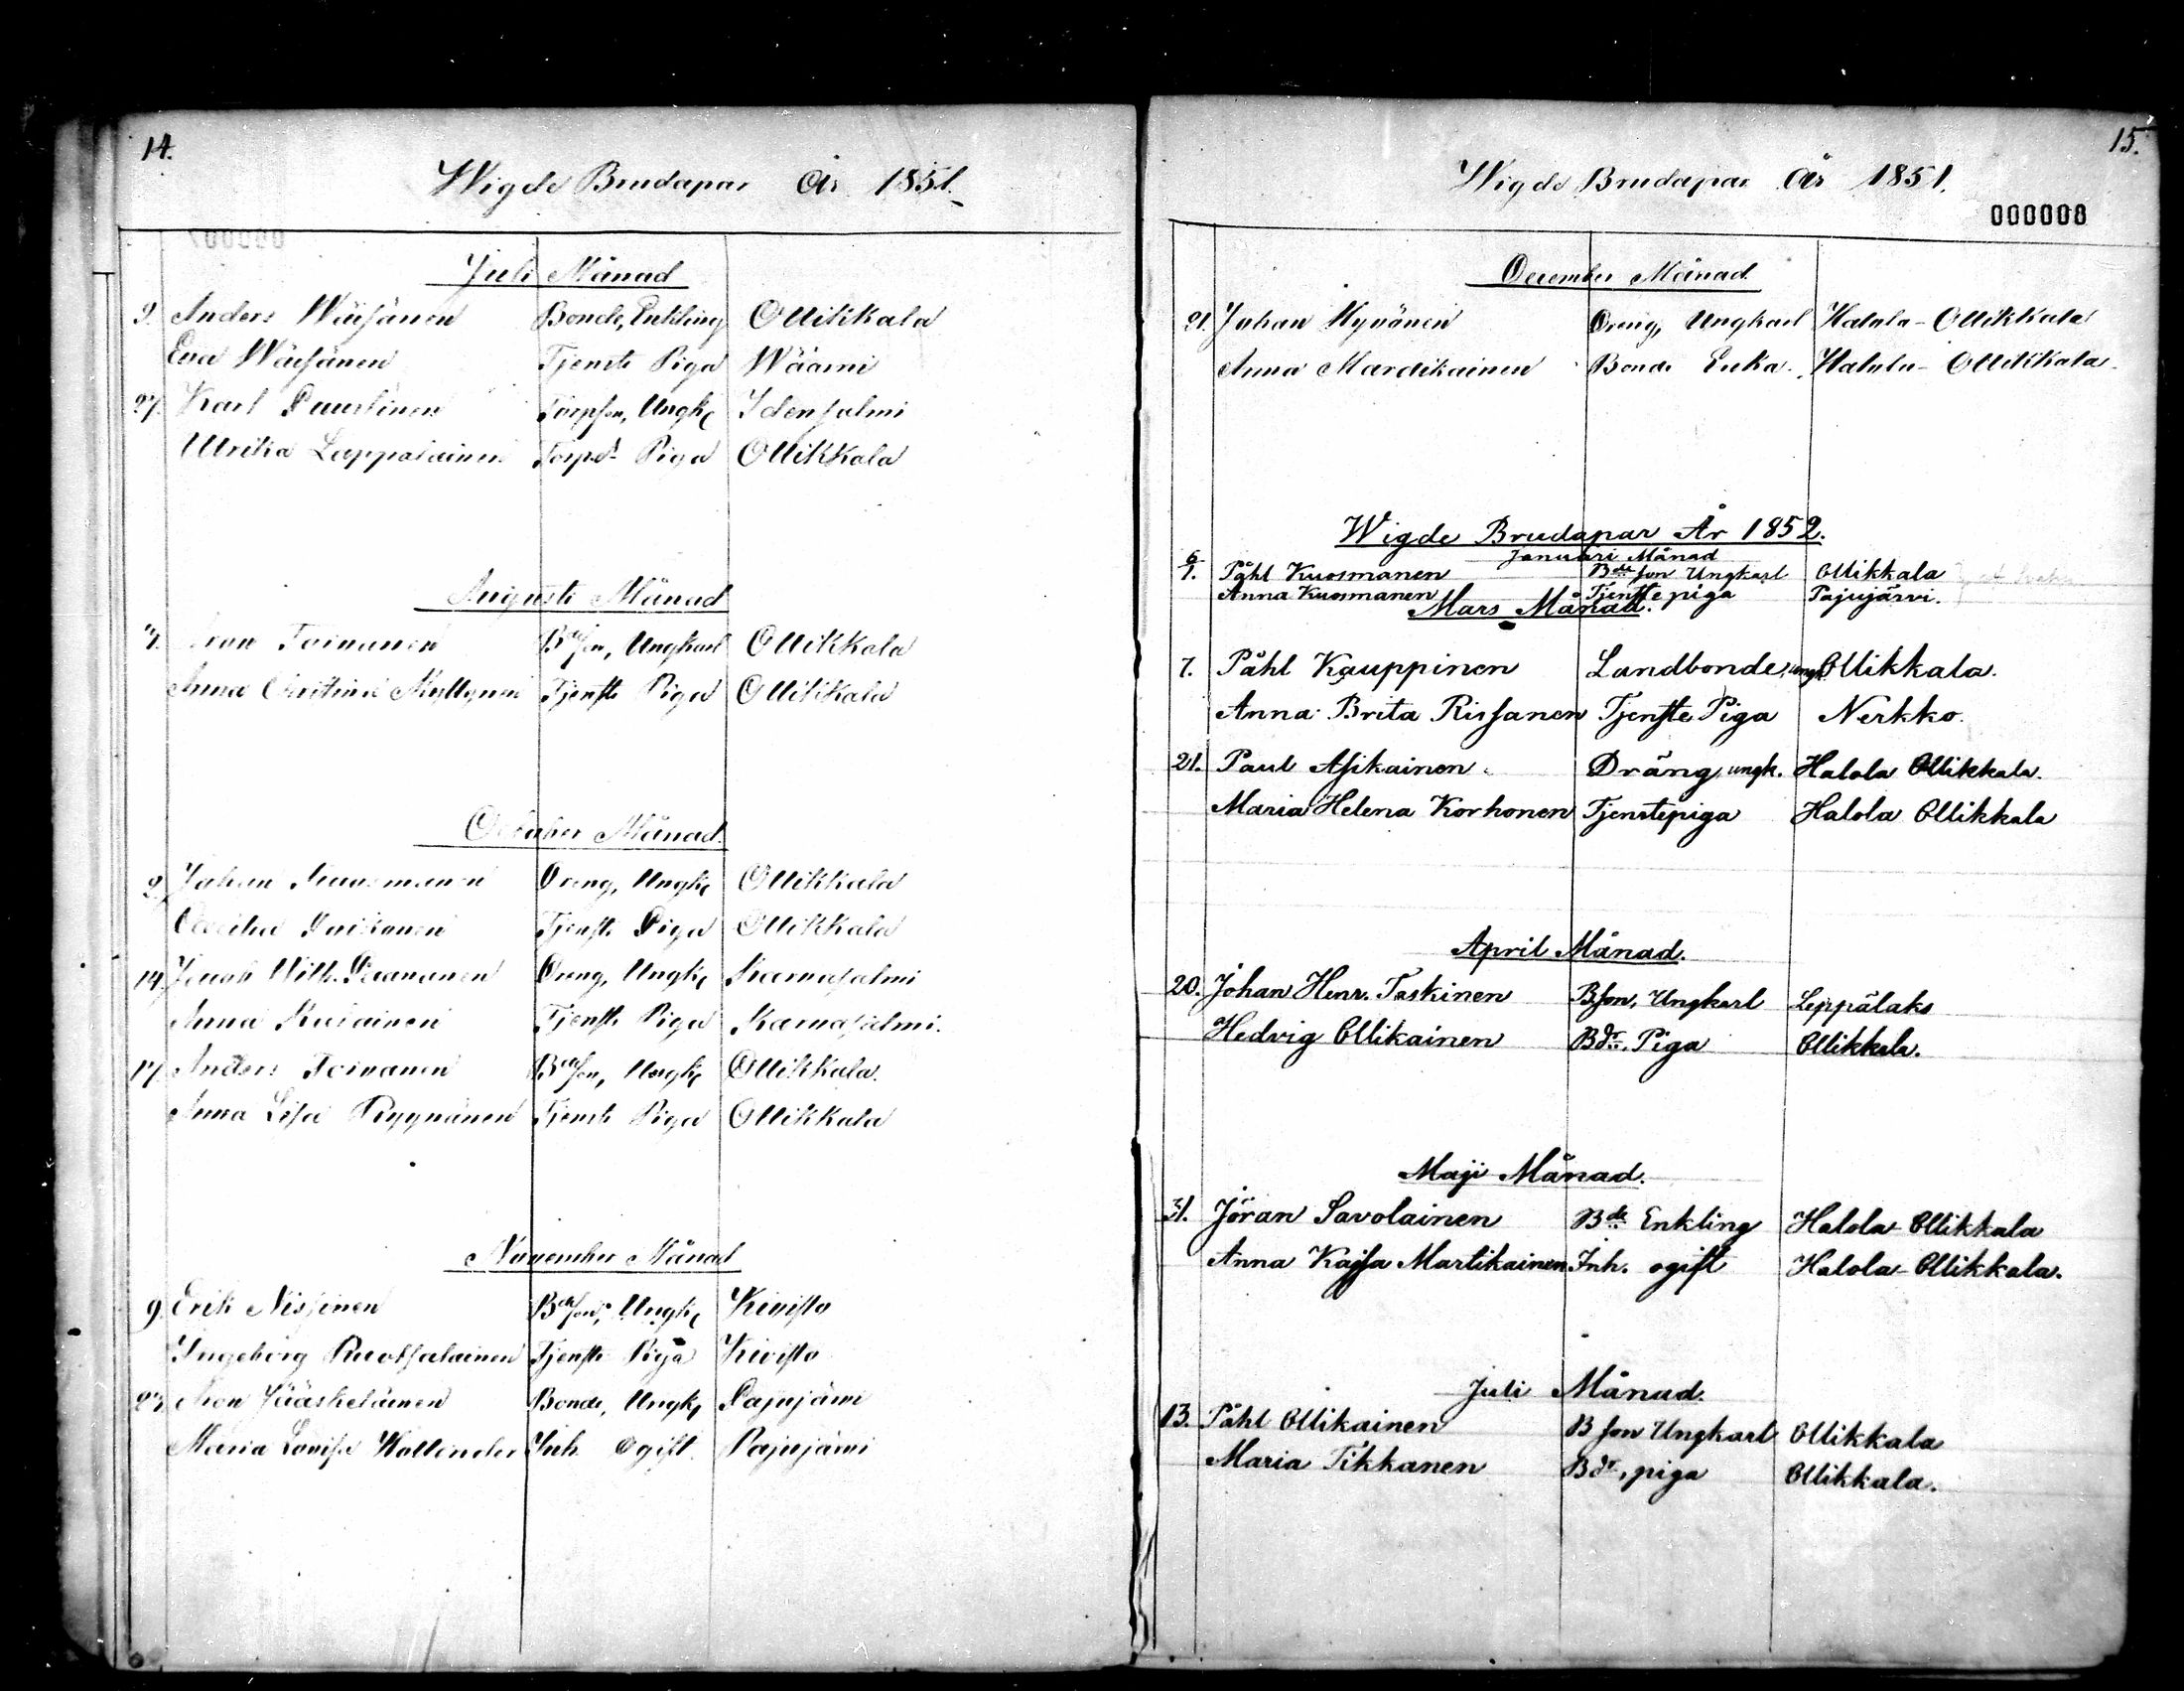 14.
Wigde Brudapar År 1851.
Juli Månad
9. Anders Wäisänen Bonde, Enkling Ollikkala
Eva Wäisänen Tjenste Piga Wäärni
27. Karl Puustinen Torpson, Ungk. Idensalmi
Ulrika Lappalainen Torpdr Piga Ollikkala
Augusti Månad
3. Toivanen Bdeson, Ungkarl Ollikkala
Anna Christina Tjenste Piga Ollikkala
October Månad.
2. Johan Kuosmanen Dreng, Ungk. Ollikkala
Cecilia Tjenste Piga Ollikkala
14. Wilh. Dreng, Ungk. Karnasalmi
Anna Tjenste Piga Karnasalmi.
17. Anders Toivanen Bdeson, Ungk. Ollikkala.
Anna Lisa Ryynänen Tjenste Piga Ollikkala
November Månad
9. Erik Nissinen Bdeson, Ungk. Kivisto
Ingeborg Ruotsalainen Tjenste Piga Kivisto
23. Aron Jääskeläinen Bonde, Ungk. Pajujärvi
Maria Lovisa Kollander Inh. Ogift. Pajujärvi
15.
Wigde Brudapar År 1851.
000008
December Månad
21. Johan Hyvönen Dreng, Ungkarl Halola-Ollikkala
Anna Mardikainen Bonde Enka. Halola-Ollikkala.
Wigde Brudapar År 1852.
Januari Månad
6/1. Påhl Kuosmanen Bde son Ungkarl Ollikkala
Anna Kuosmanen Tjenste piga Pajujärvi.
Mars Månad.
7. Påhl Kauppinen Landbonde, ungk. Ollikkala.
Anna Brita Rissanen Tjenste Piga Nerkko.
21. Paul Asikainen Dräng, ungk. Halola Ollikkala.
Maria Helena Korhonen Tjenstepiga Halola Ollikkala
April Månad.
20. Johan Henr. Taskinen Bson, Ungkarl Leppälaks
Hedvig Ollikainen Bdr. Piga Ollikkala.
Maji Månad.
31. Jöran Savolainen Bde Enkling Halola-Ollikkala
Anna Kajsa Martikainen Inh. ogift Halola-Ollikkala.
Juli Månad.
13. Påhl Ollikainen B son Ungkarl Ollikkala
Maria Tikkanen Bdr, piga Ollikkala.